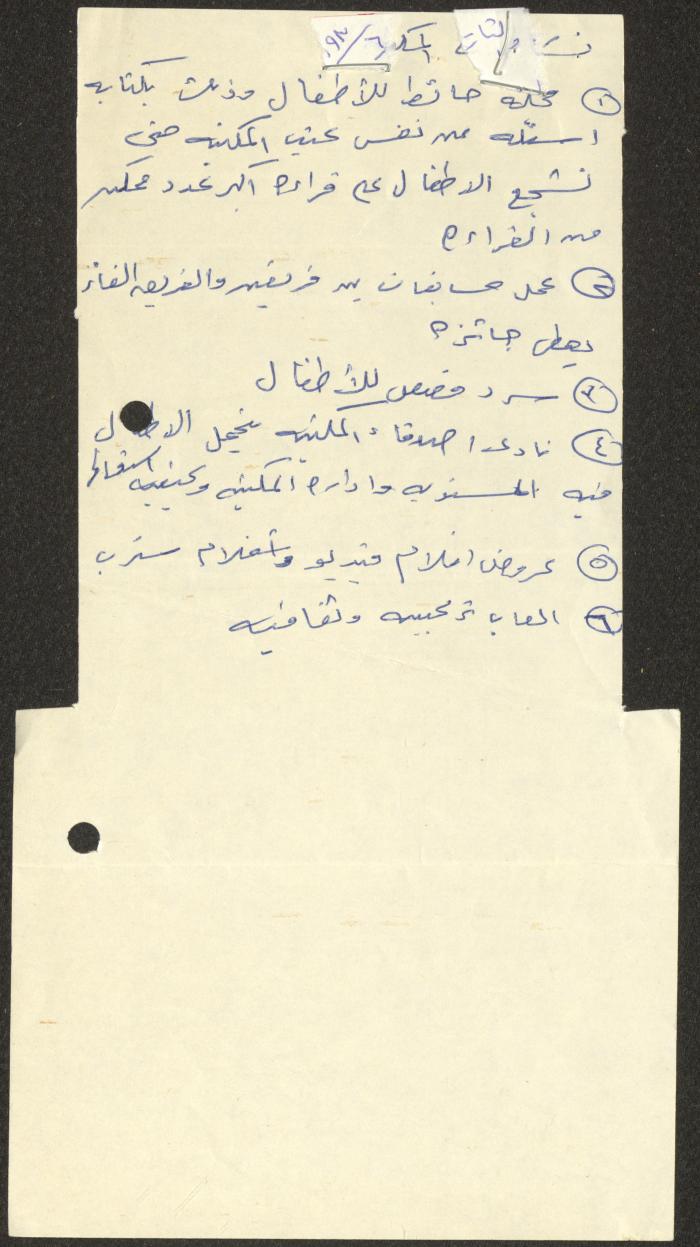 نشاطات المكتبة ٦/٩٣
① مجلة حائط للأطفال وذلك بكتابه
اسئله من نفس كتب المكتبه حتى
نشجع الاطفال على قراءه اكبر عدد ممكن
من القراءه
② عمل مسابقات بين فريقين والفريق الفائز
يعطى جائزه
③ سرد قصص للأطفال
④ نادي اصدقاء المكتبه يتحمل الاطفال
فيه المسئوليه وادارة المكتبه وكيفيه
⑤ عروض افلام فيديو وافلام سترب
⑥ العاب ترفيهيه وثقافيه